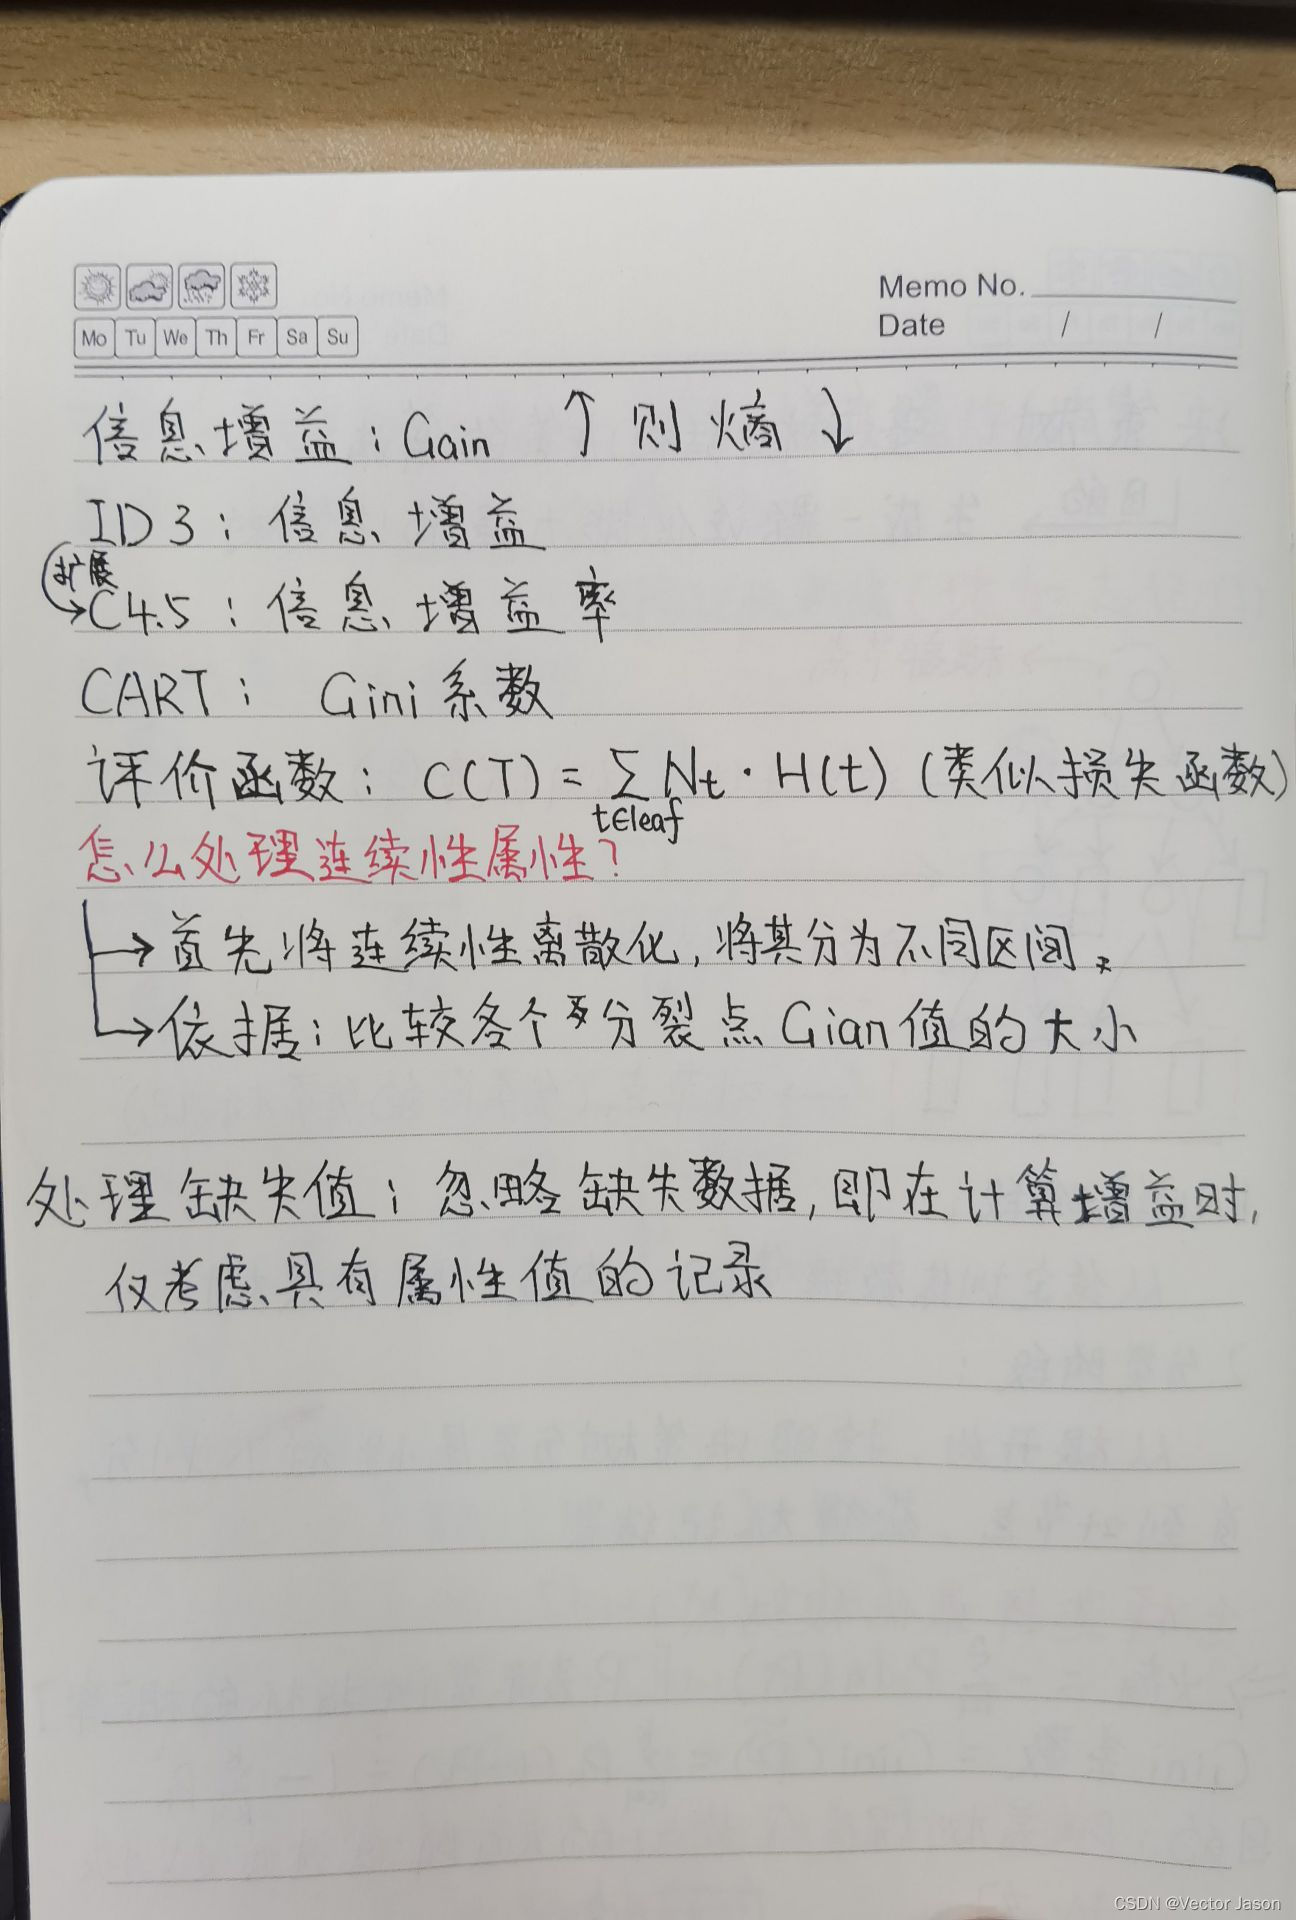 Memo No.
Mo Tu We Th Fr Sa Su
Date / /
信息增益：Gain ↑ 则熵 ↓
ID3：信息增益
扩展
C4.5：信息增益率
CART： Gini系数
评价函数： C(T) = ∑ Nt · H(t) (类似损失函数)
t∈leaf
怎么处理连续性属性？
→首先将连续性离散化，将其分为不同区间。
→依据：比较各个分裂点Gian值的大小
处理缺失值：忽略缺失数据，即在计算增益时，
仅考虑具有属性值的记录
CSDN @Vector Jason